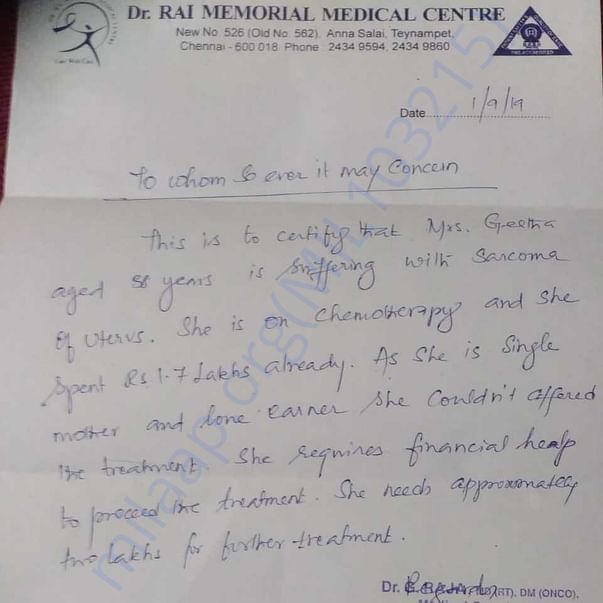 Dr. RAI MEMORIAL MEDICAL CENTRE
New No. 526 (Old No. 562). Anna Salai, Teynampet,
Chennai - 600 018 Phone : 2434 9594, 2434 9860
Date 1/9/19
To whom so ever it may concern
This is to certify that Mrs. Geetha
aged 58 years is suffering with Sarcoma
of uterus. She is on Chemotherapy and She
Spent Rs 1.7 Lakhs already. As She is Single
mother and lone earner She Couldn't afford
the treatment. She requires financial healp
to proceed the treatment. She needs approximately
two lakhs for further treatment.
Dr. RAJA (RT). DM (ONCO).
milaap.org(MIL1032151